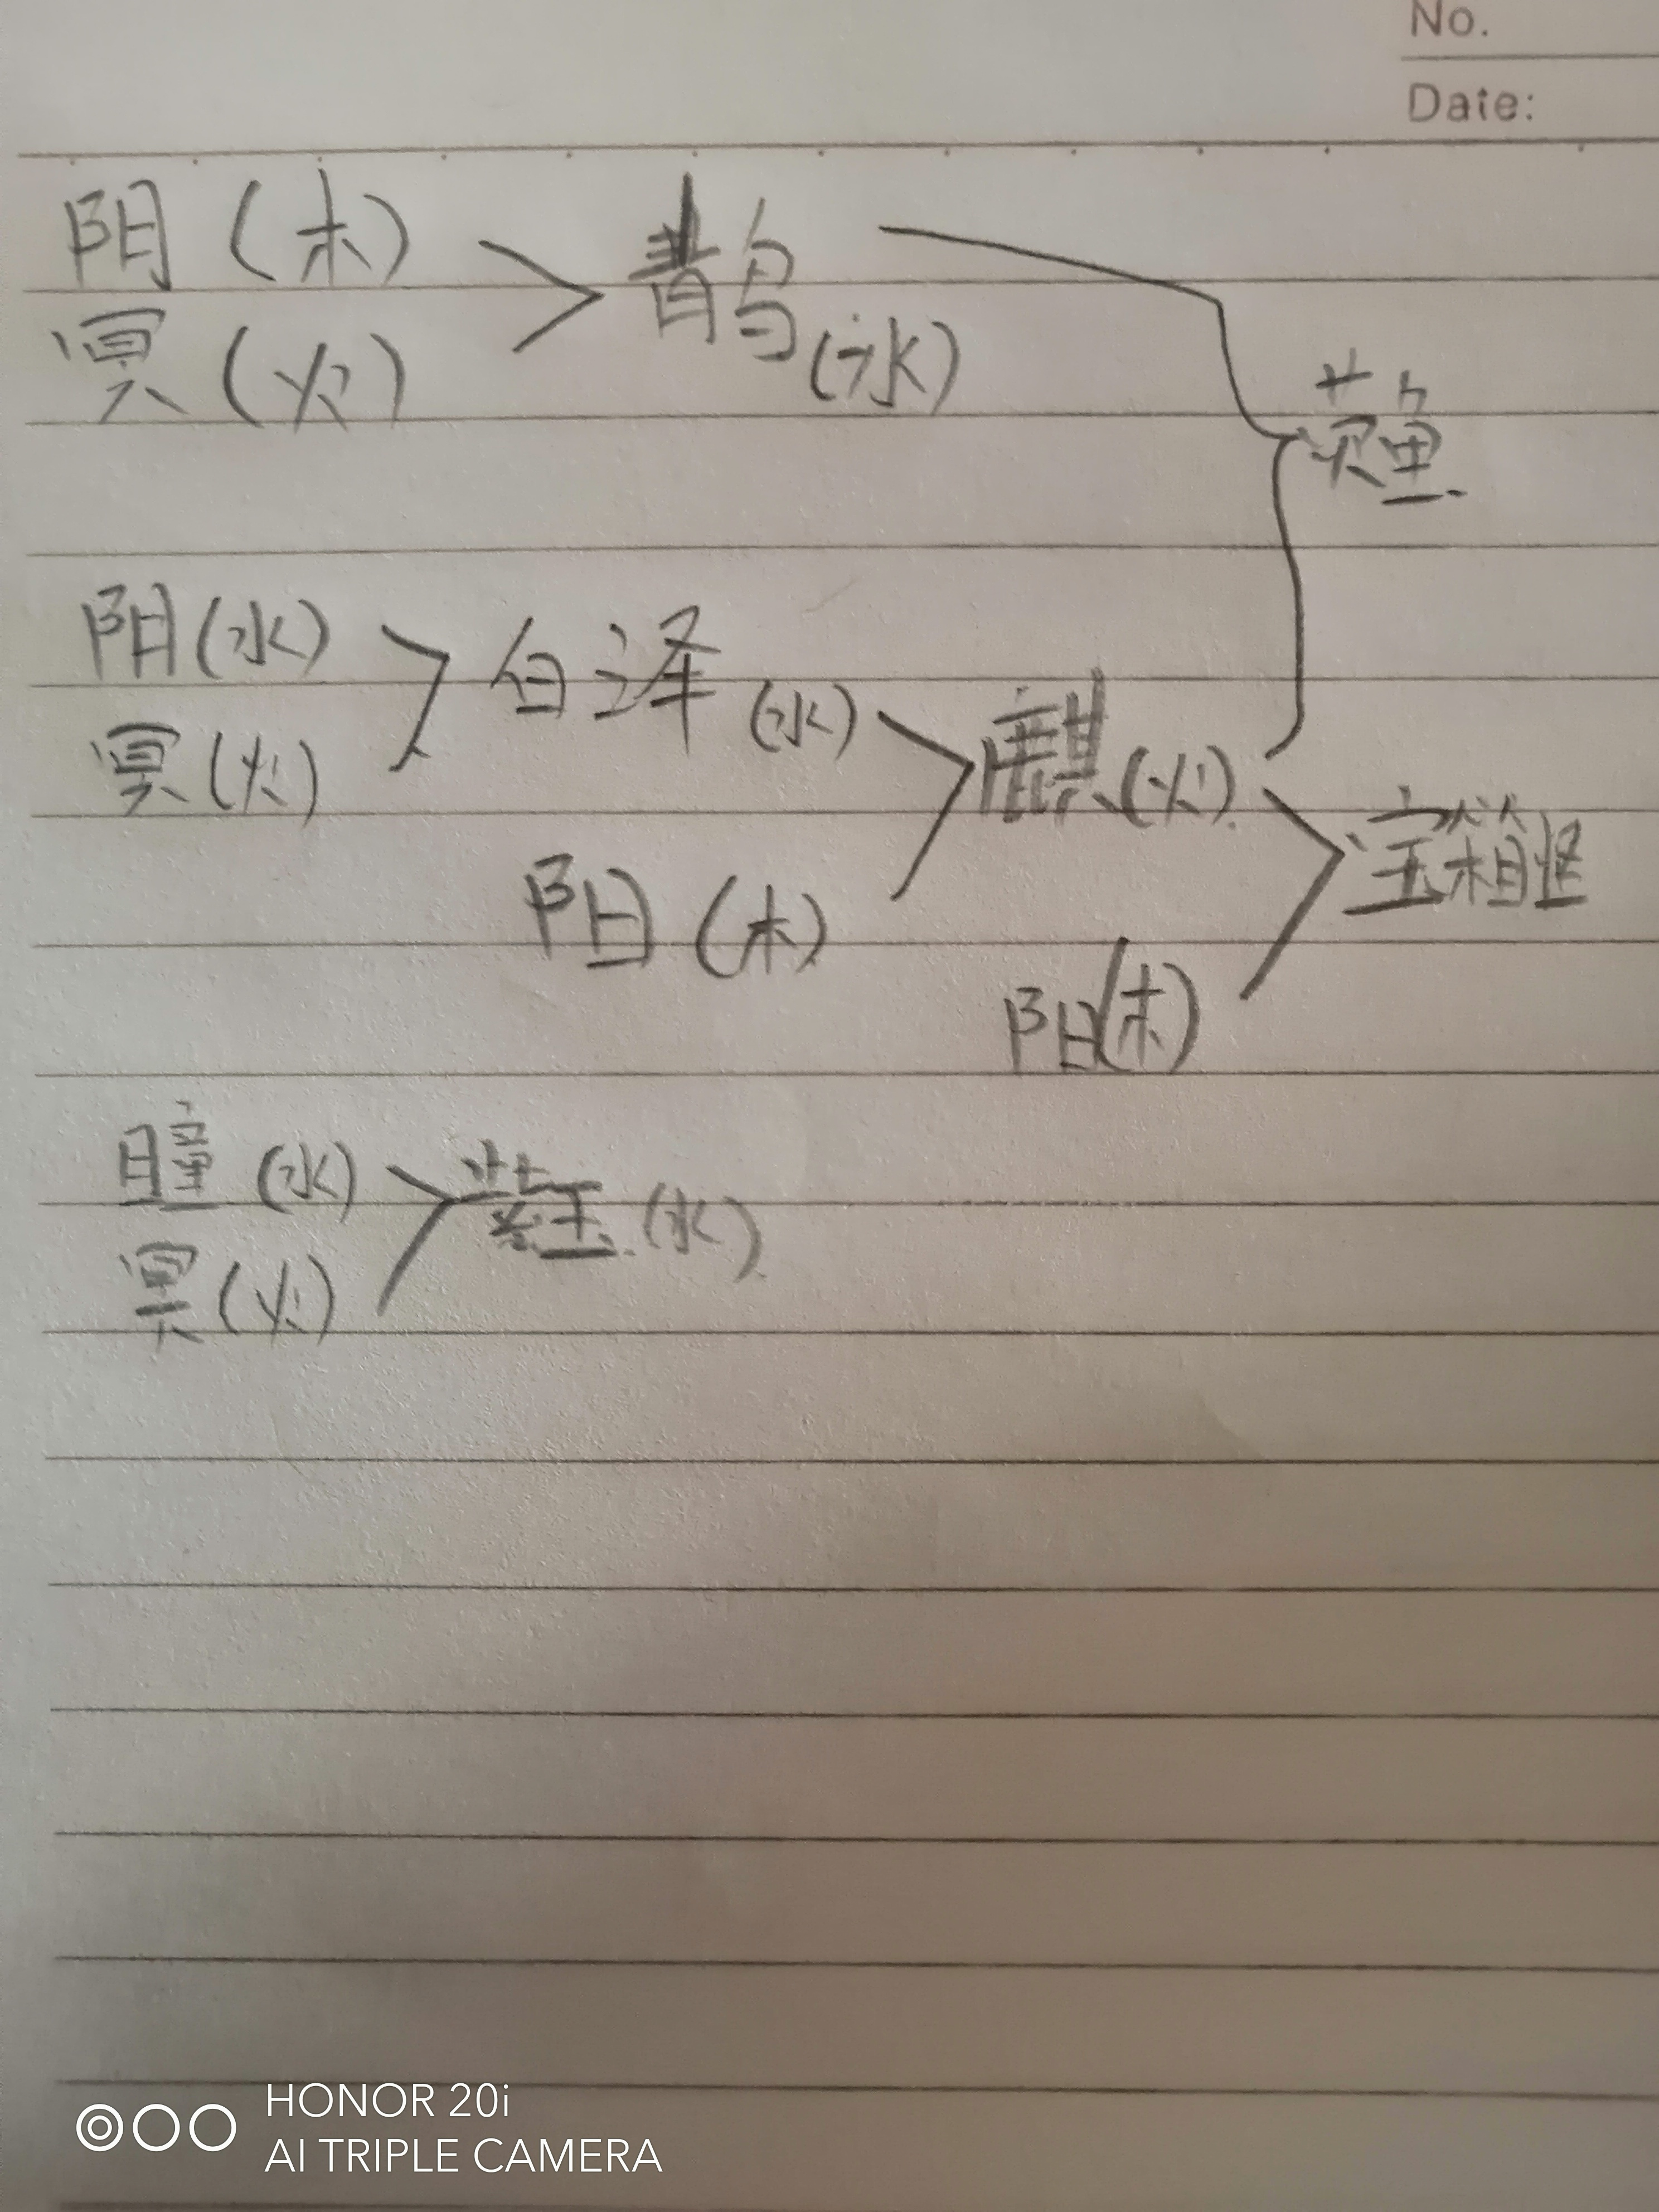 No.
Date:
阴（木）
鹊（冰）
冥（火）
阳（水）
白泽（水）
冥（火）
麒（火）
宝箱怪
阳（木）
阳（木）
瞳（水）
（水）
冥（火）
HONOR 20i
AI TRIPLE CAMERA